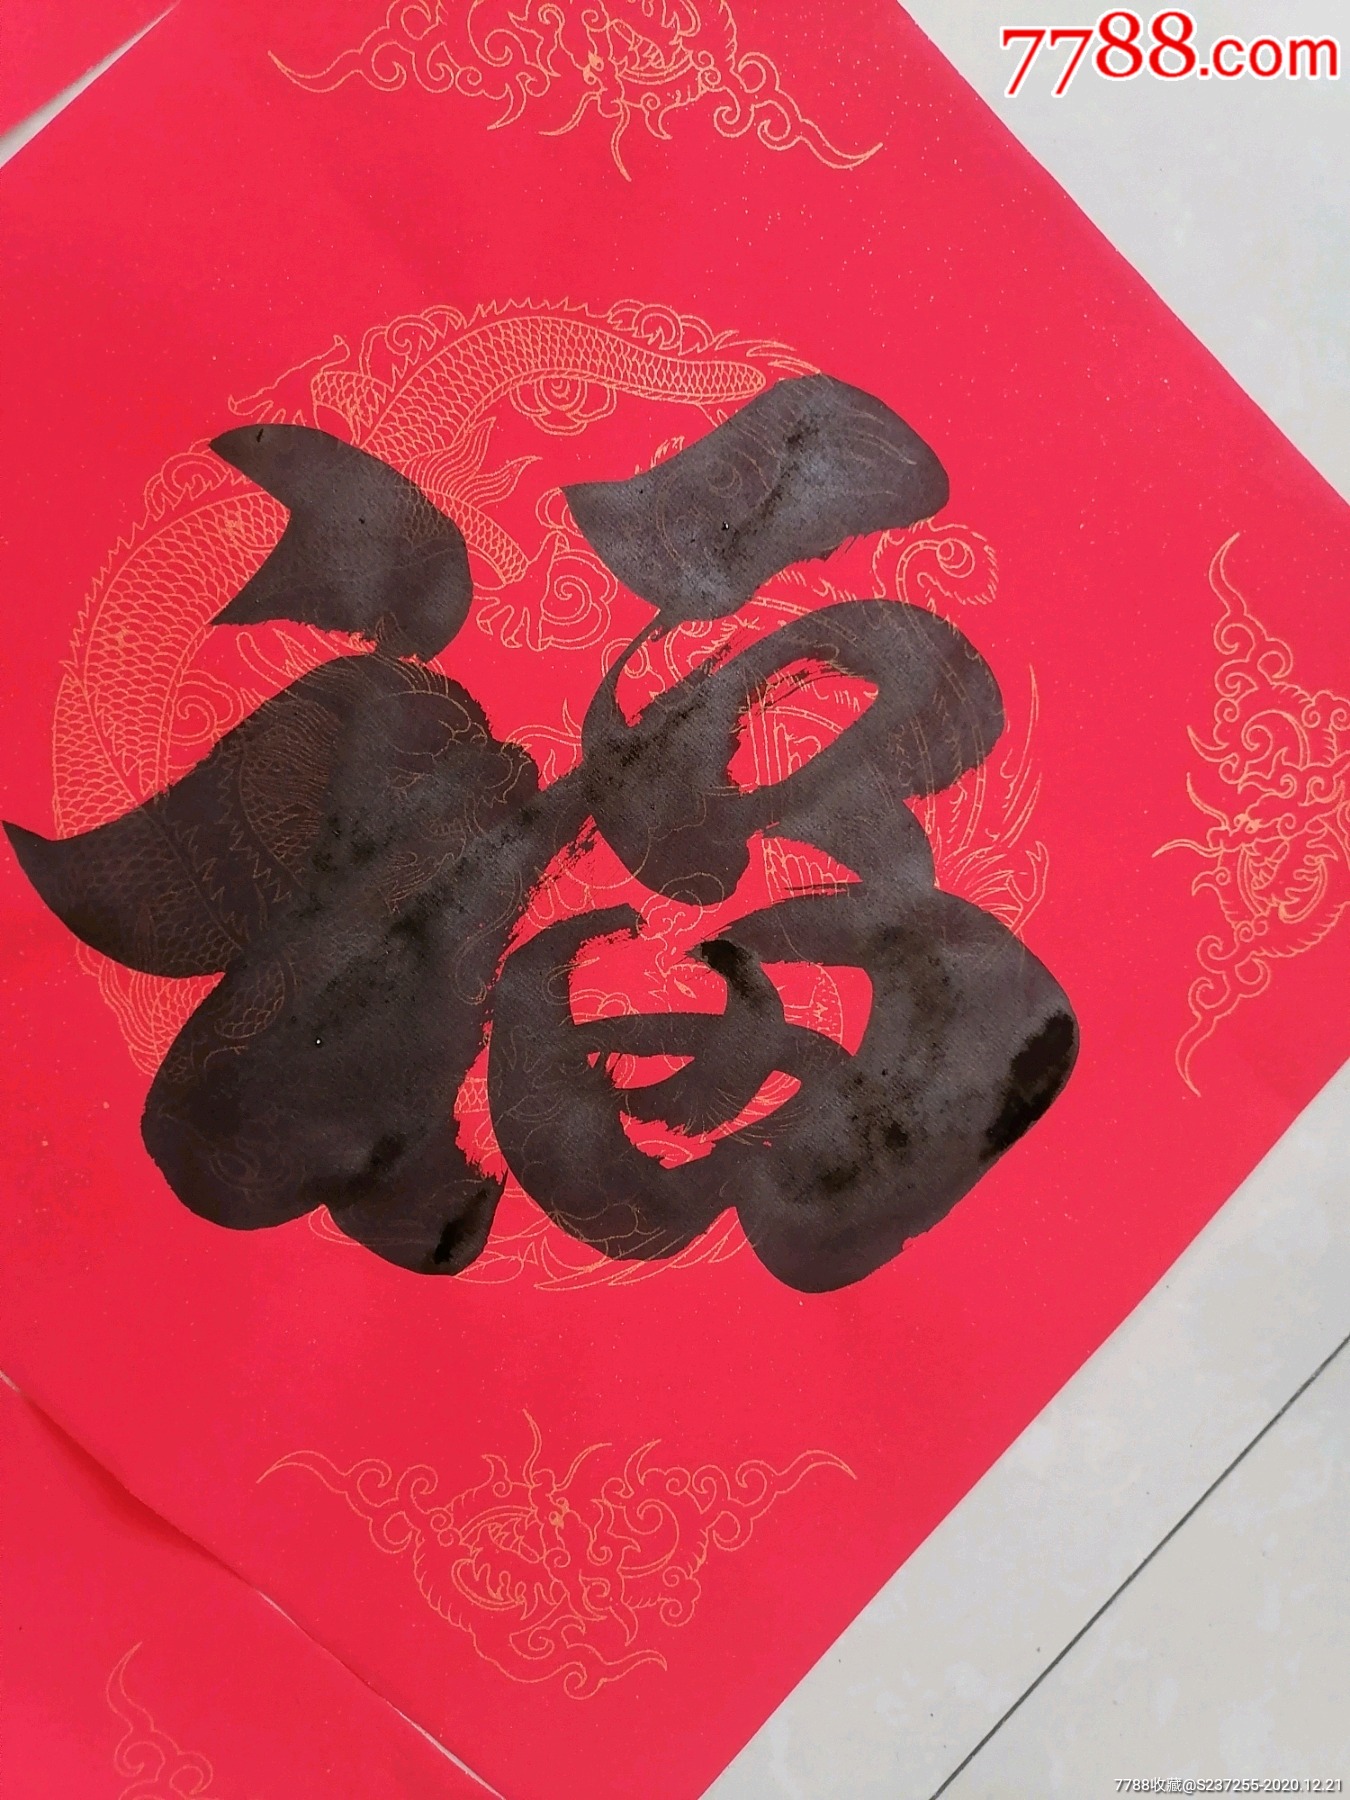 7788.com
福
7788收藏@S237255-2020.12.21